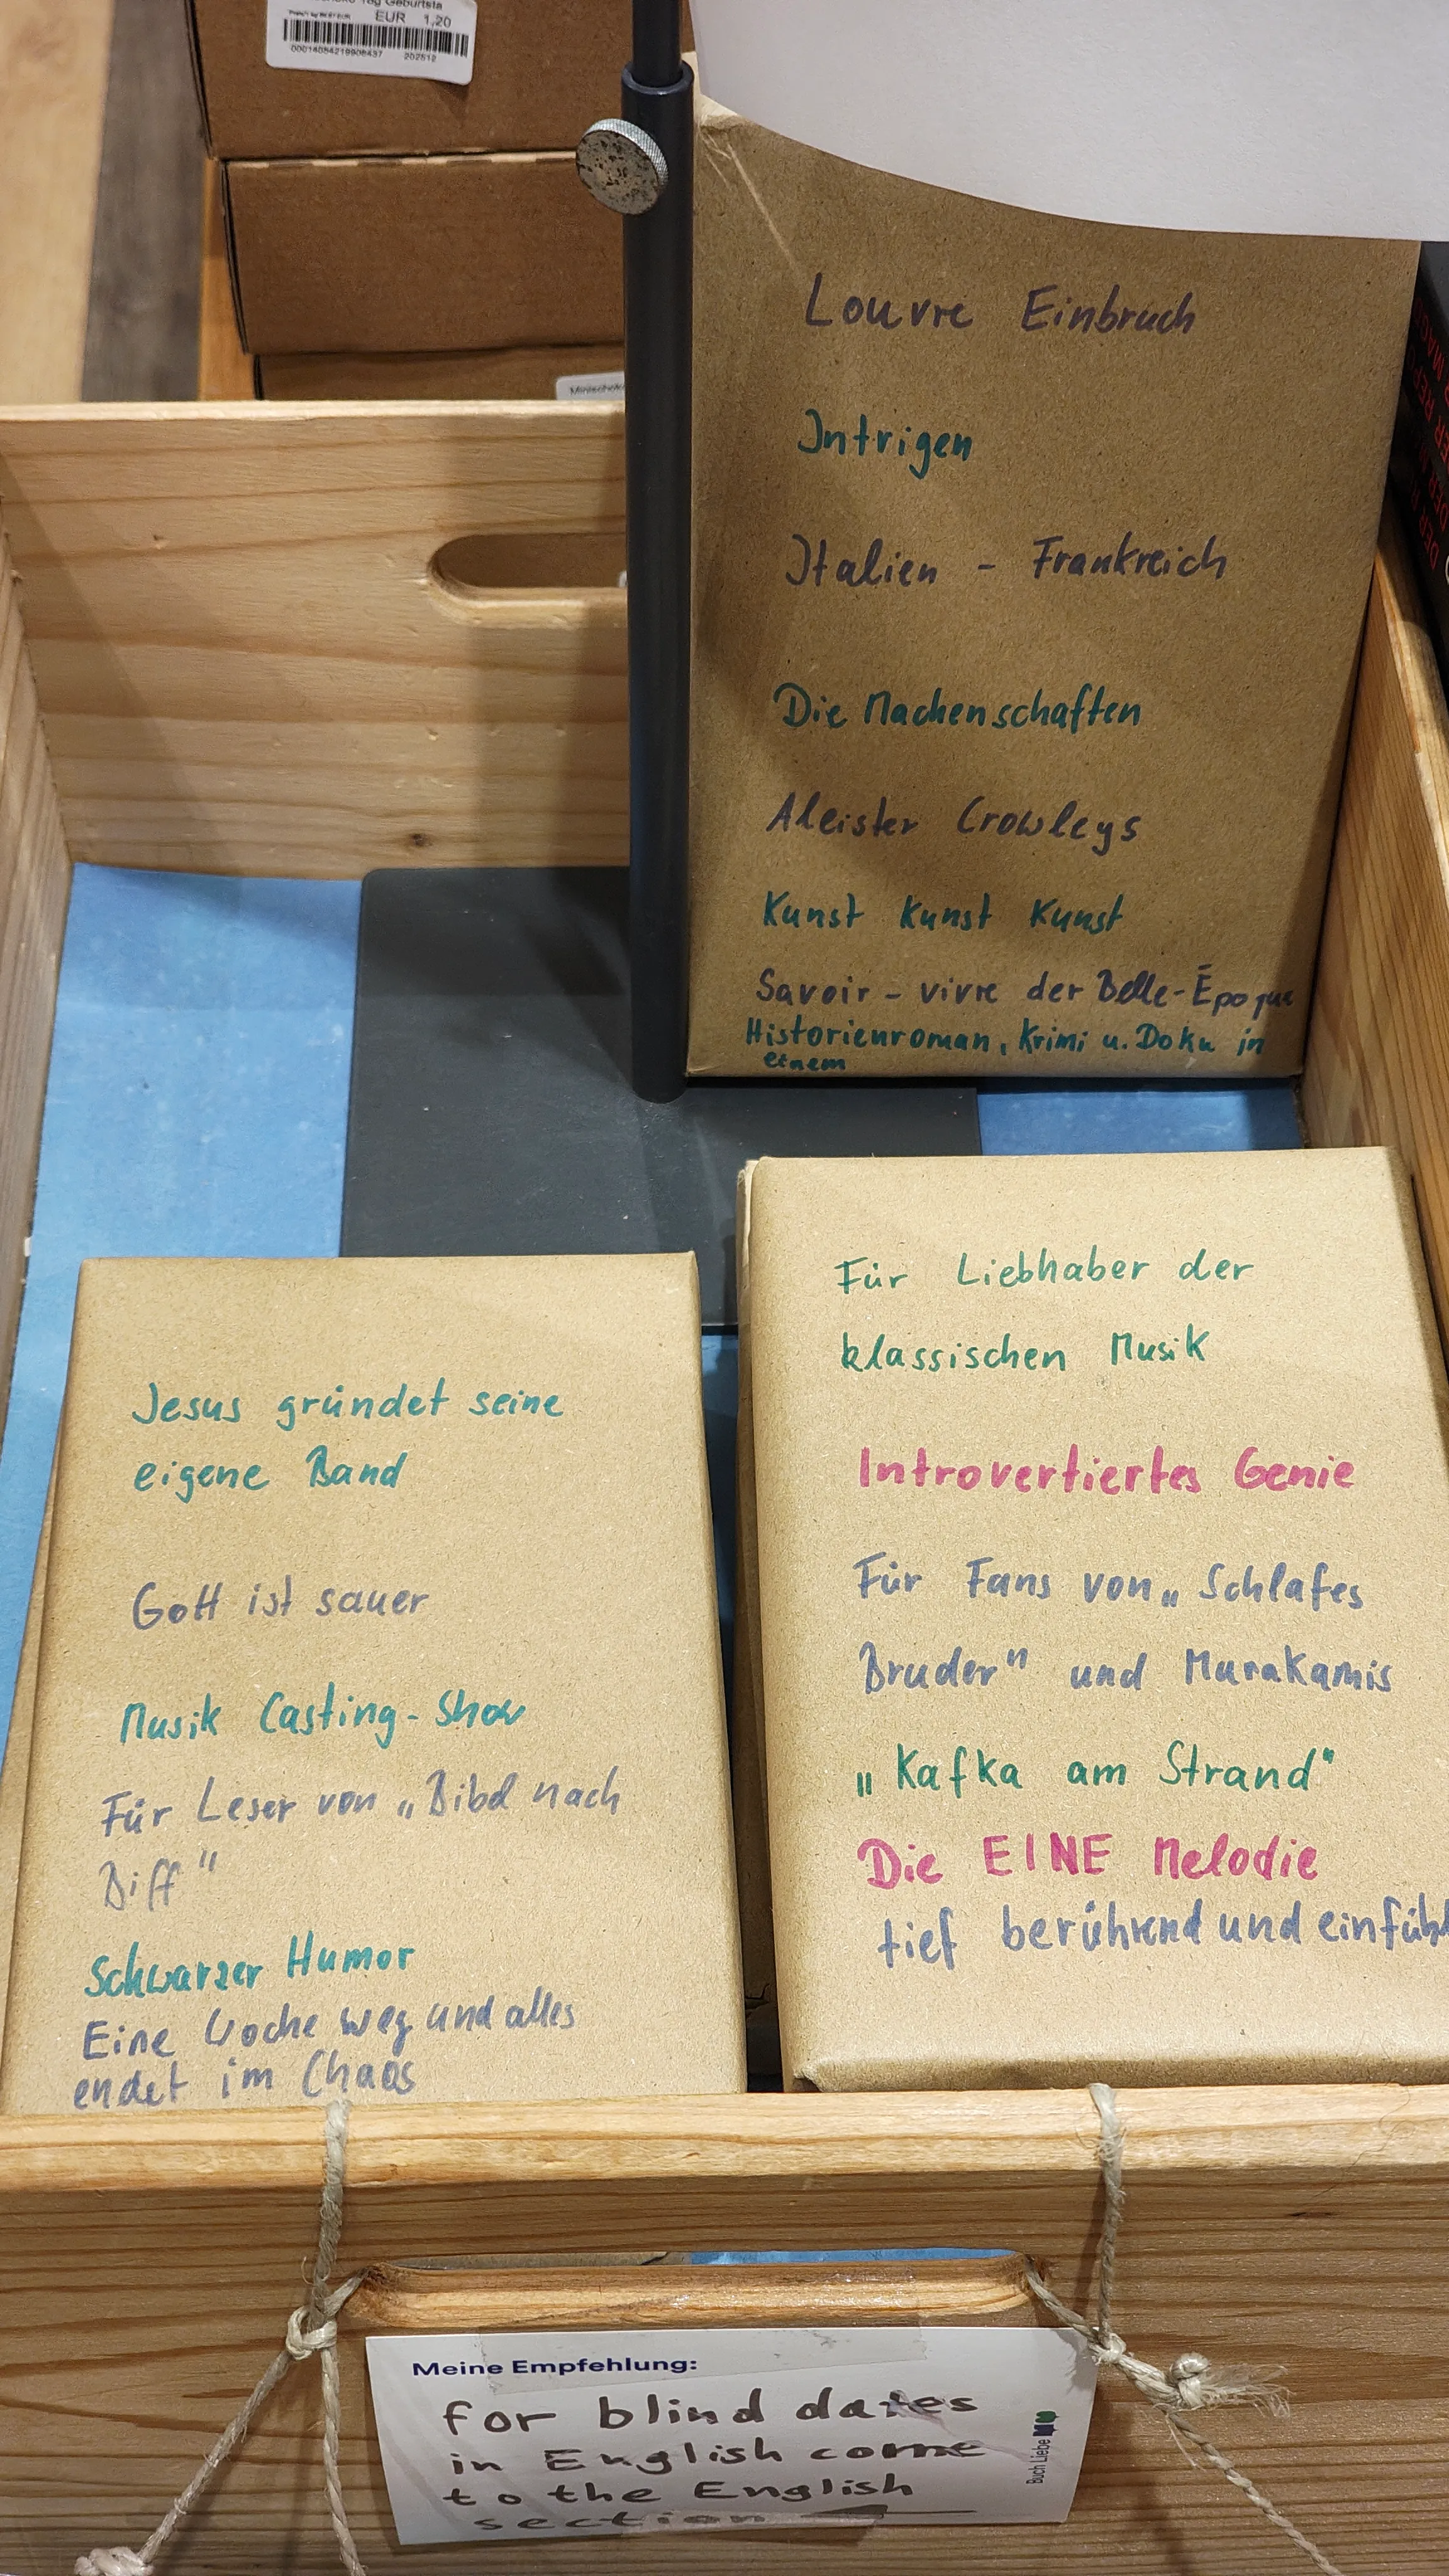 EUR 1,20
202512
Louvre Einbruch
Intrigen
Italien - Frankreich
Die Machenschaften
Aleister Crowleys
Kunst Kunst Kunst
Savoir-vivre der Belle-Époque
Historienroman, Krimi u. Doku in
einem
Für Liebhaber der
klassischen Musik
Introvertiertes Genie
Für Fans von „Schlafes
Bruder" und Murakamis
„Kafka am Strand"
Die EINE Melodie
tief berührend und einfüh
Jesus gründet seine
eigene Band
Gott ist sauer
Musik Casting-Show
Für Leser von „Bibel nach
Biff"
Schwarzer Humor
Eine Woche weg und alles
endet im Chaos
Meine Empfehlung:
for blind dates
in English come
to the English
section
Buch Liebe